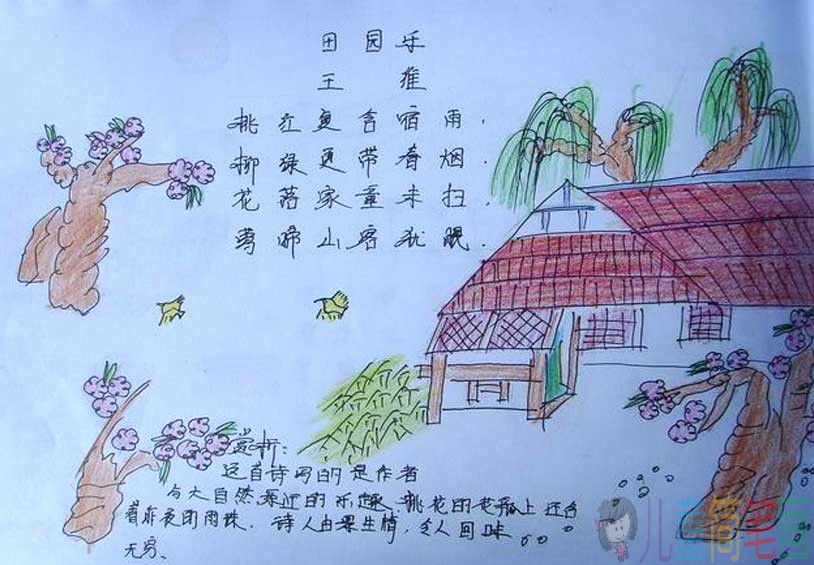 田园乐
王维
桃红复含宿雨，
柳绿更带春烟．
花落家童未扫，
莺啼山客犹眠．
赏析：
这首诗写的是作者
与大自然亲近的乐趣．桃花的花瓣上还含
着昨夜的雨珠．诗人由景生情，令人回味
无穷、
儿童简笔画